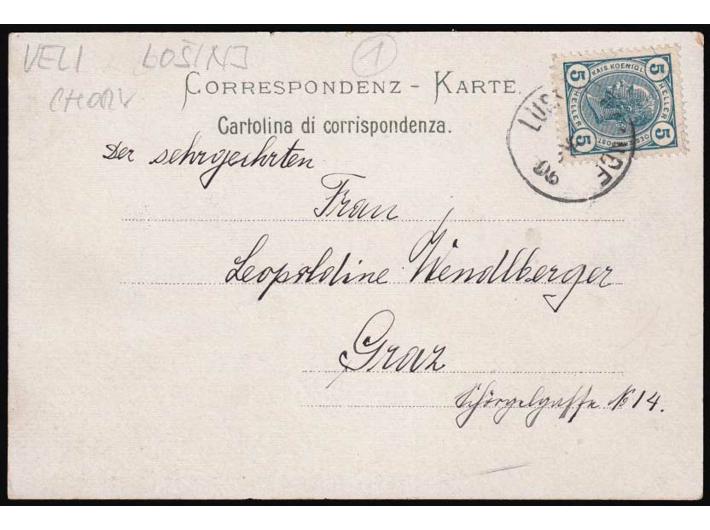 VELI LOŠINJ
①
CHORV
CORRESPONDENZ - KARTE.
Cartolina di corrispondenza.
5 KAIS. KOENIGL. 5
HELLER HELLER
5 OESTERR. POST 5
LUS
06
Der sehrgeehrten
Frau
Leopoldine Wendlberger
Graz
Schörgelgasse No 14.